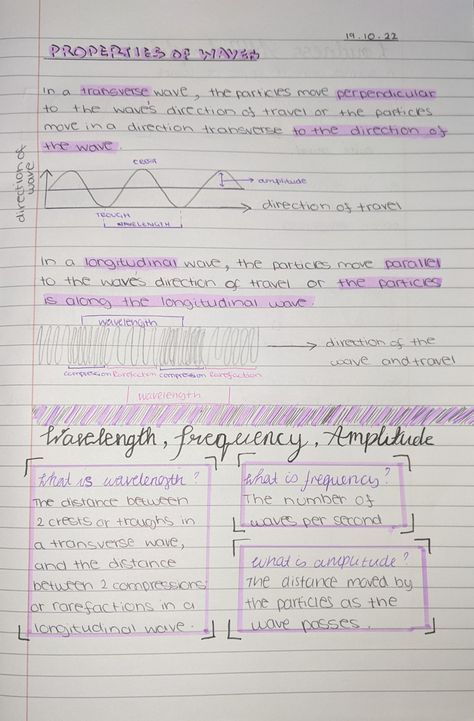 19.10.22
PROPERTIES OF WAVES
In a transverse wave, the particles move perpendicular
to the wave's direction of travel or the particles
move in a direction transverse to the direction of
the wave.
direction of
wave
CREST
amplitude
direction of travel
TROUGH
WAVELENGTH
In a longitudinal wave, the particles move parallel
to the wave's direction of travel or the particles
is along the longitudinal wave.
wavelength
direction of the
wave and travel
compression Rarefaction compression Rarefaction
wavelength
Wavelength, frequency, Amplitude
What is wavelength?
The distance between
2 crests or troughs in
a transverse wave,
and the distance
between 2 compressions
or rarefactions in a
longitudinal wave.
What is frequency?
The number of
waves per second
What is amplitude?
The distance moved by
the particles as the
wave passes.